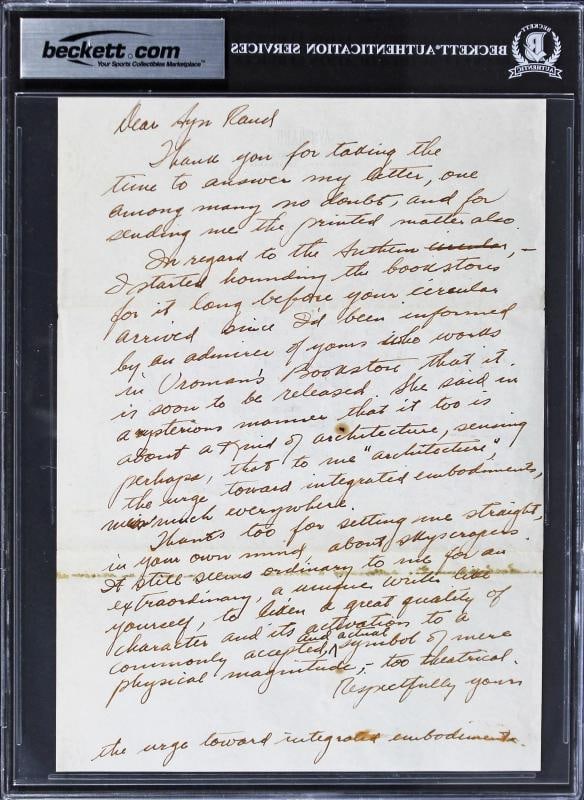 beckett.com
Your Sports Collectibles Marketplace™
BECKETT AUTHENTICATION SERVICES
Dear Ayn Rand
Thank you for taking the
time to answer my letter, one
among many no doubt, and for
sending me the printed matter also.
In regard to the Anthem circular, –
I started hounding the bookstores
for it long before your circular
arrived since I'd been informed
by an admirer of yours who works
in Vroman's Bookstore that it
is soon to be released. She said in
a mysterious manner that it too is
about a kind of architecture, sensing
perhaps, that to me "architecture",
the urge toward integrated embodiments,
was much everywhere.
Thanks too for setting me straight,
in your own mind, about skyscrapers.
It still seems ordinary to me for an
extraordinary, a unique writer like
yourself, to liken a great quality of
character and its activation to a
commonly accepted, and actual symbol of mere
physical magnitude, – too theatrical.
Respectfully yours
the urge toward integrated embodiments